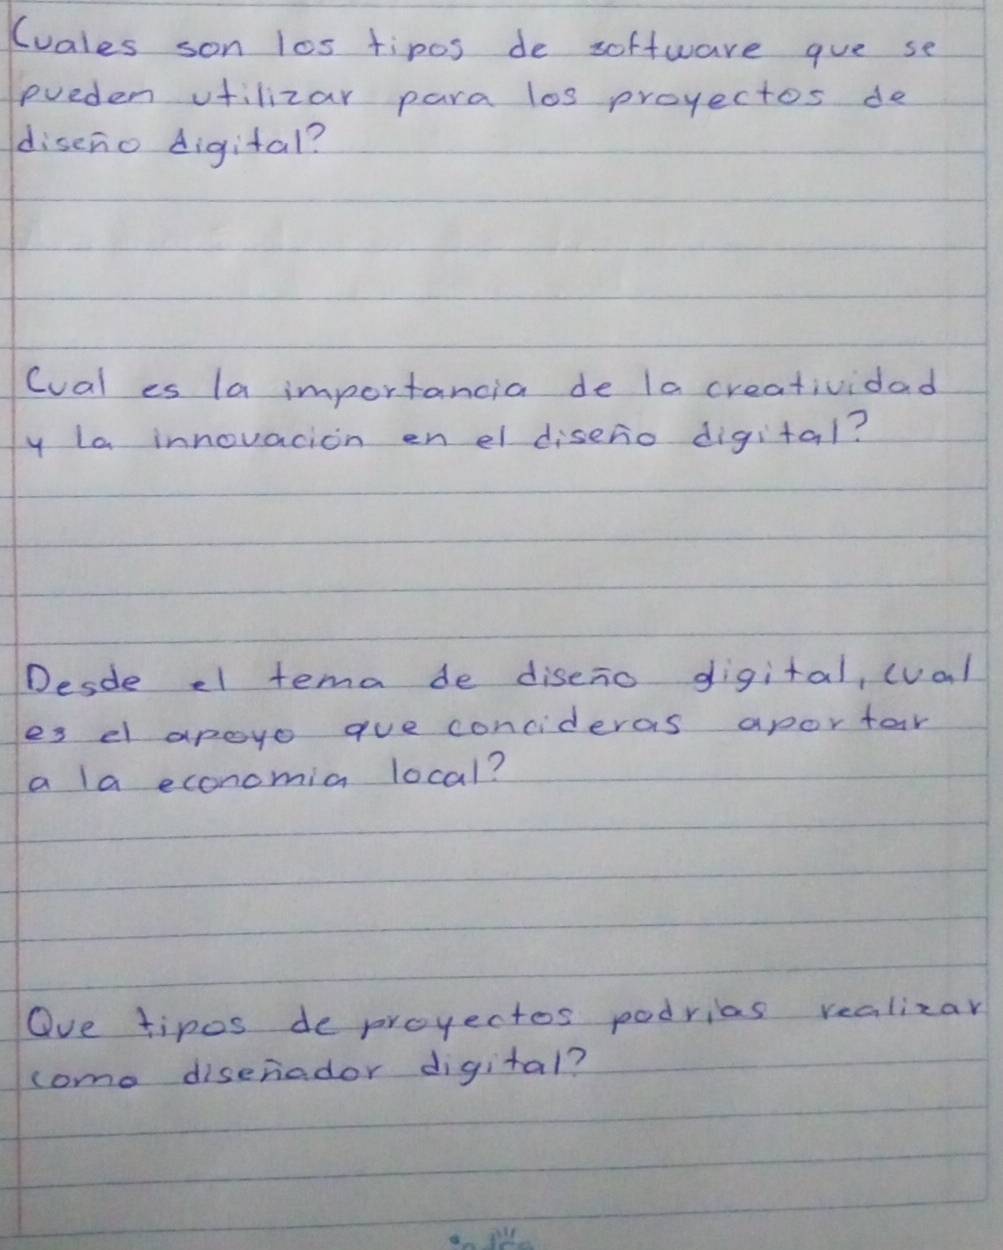 Cuales son los tipos de software que se
pueden utilizar para los proyectos de
diseño digital?
Cual es la importancia de la creatividad
y la innovación en el diseño digital?
Desde el tema de diseño digital, cual
es el apoyo que concideras aportar
a la economia local?
Que tipos de proyectos podrias realizar
como diseñador digital?